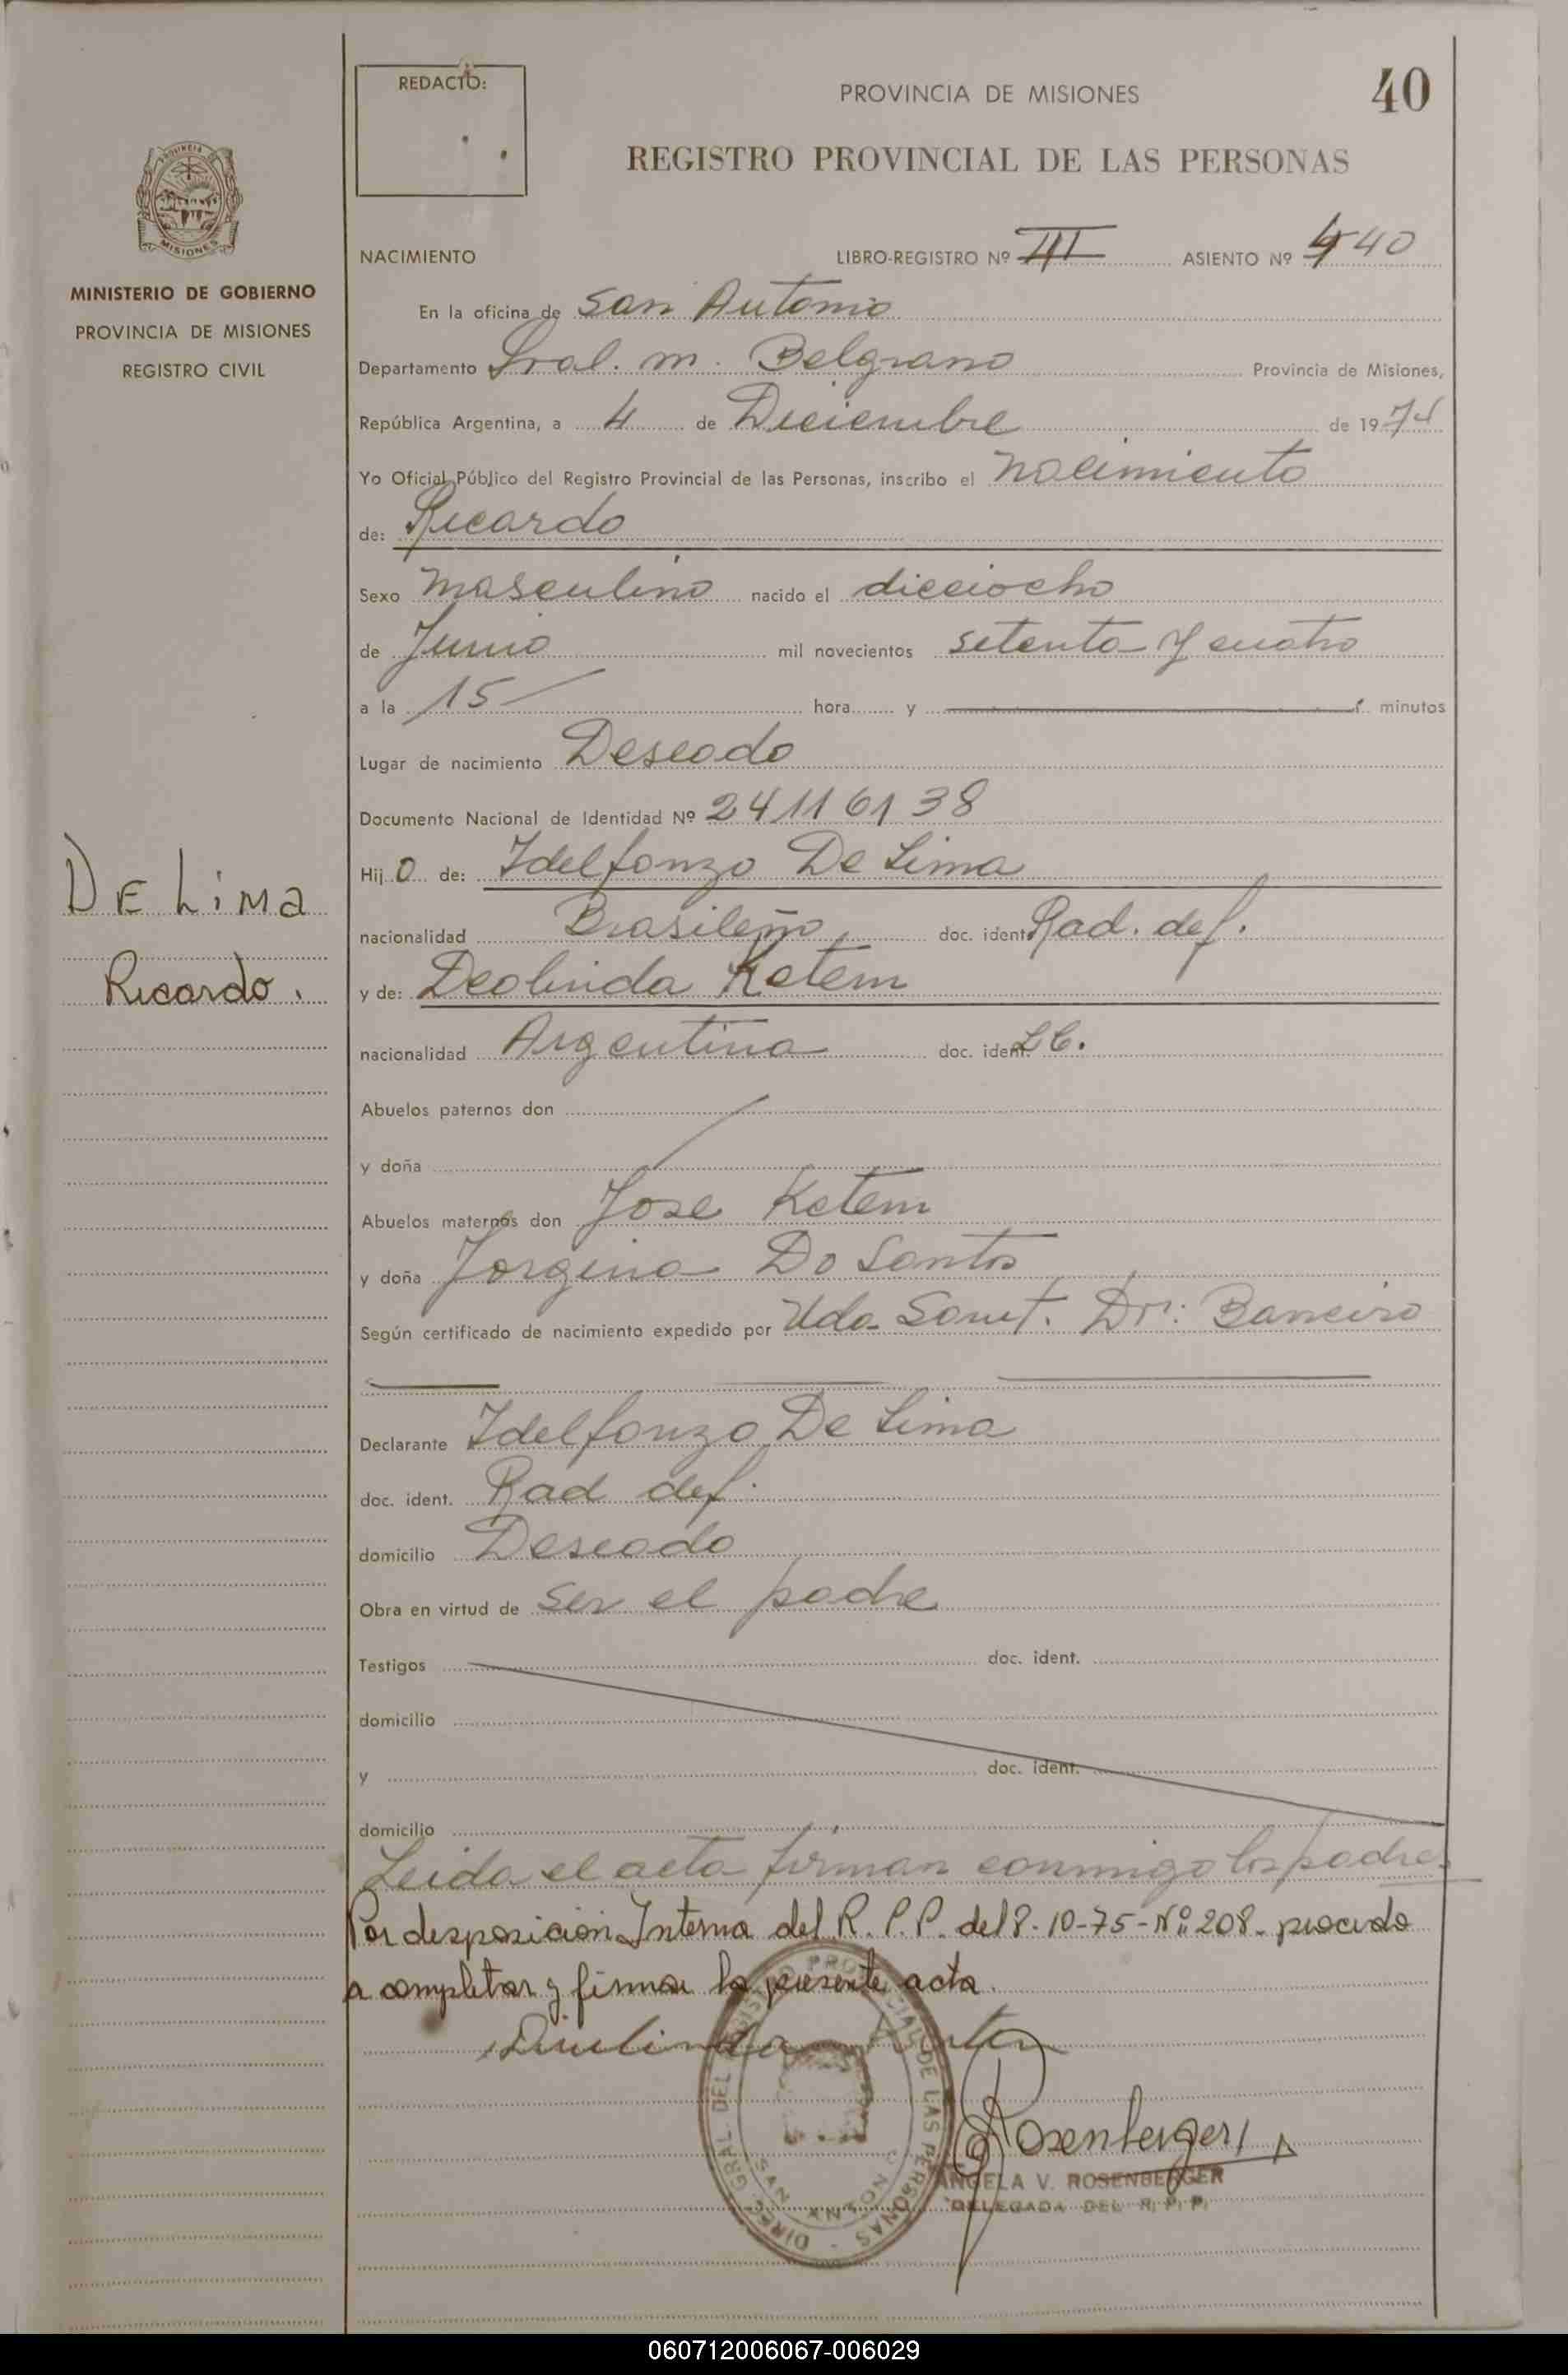 REDACTO:
PROVINCIA DE MISIONES
40
REGISTRO PROVINCIAL DE LAS PERSONAS
PROVINCIA
MISIONES
MINISTERIO DE GOBIERNO
PROVINCIA DE MISIONES
REGISTRO CIVIL
NACIMIENTO LIBRO-REGISTRO Nº III ASIENTO Nº 440
En la oficina de San Antonio
Departamento Gral. M. Belgrano Provincia de Misiones,
República Argentina, a 4 de Diciembre de 1974
Yo Oficial Público del Registro Provincial de las Personas, inscribo el nacimiento
de: Ricardo
Sexo masculino nacido el dieciocho
de Junio mil novecientos setenta y cuatro
a la 15 hora y minutos
Lugar de nacimiento Deseado
Documento Nacional de Identidad Nº 24116138
DE LiMa
Ricardo.
Hijo de: Idelfonzo De Lima
nacionalidad Brasileño doc. ident. Rad. def.
y de: Deolinda Ketem
nacionalidad Argentina doc. ident. LC.
Abuelos paternos don
y doña
Abuelos maternos don Jose Ketem
y doña Jorgina Do Santos
Según certificado de nacimiento expedido por Uda Sanit. Dr.
Declarante Idelfonzo De Lima
doc. ident. Rad def.
domicilio Deseado
Obra en virtud de ser el padre
Testigos doc. ident.
domicilio
y doc. ident.
domicilio
Leida el acta firman conmigo los padres
Por desposición Interna del R.P.P. del 8-10-75-Nº 208- procedo
a completar y firmar la presente acta.
DIREC. GRAL. DEL REGISTRO PROVINCIAL DE LAS PERSONAS
SAN ANTONIO
Rosenberger
ANGELA V. ROSENBERGER
DELEGADA DEL R. P. P.
060712006067-006029